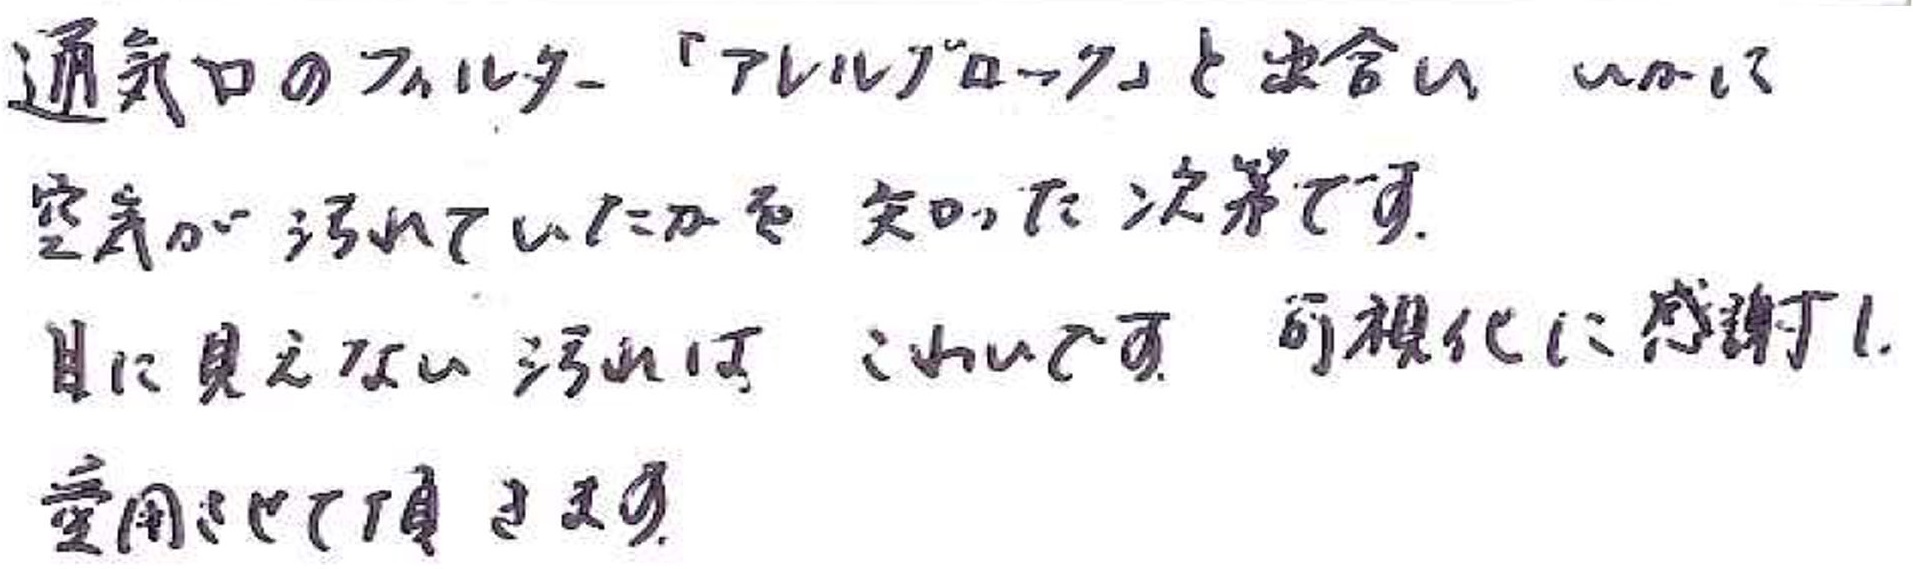 通気口のフィルター「アレルブロック」と出合い いかに
空気が汚れていたかを 知った次第です.
目に見えない汚れは こわいです. 可視化に感謝し.
愛用させて頂きます.